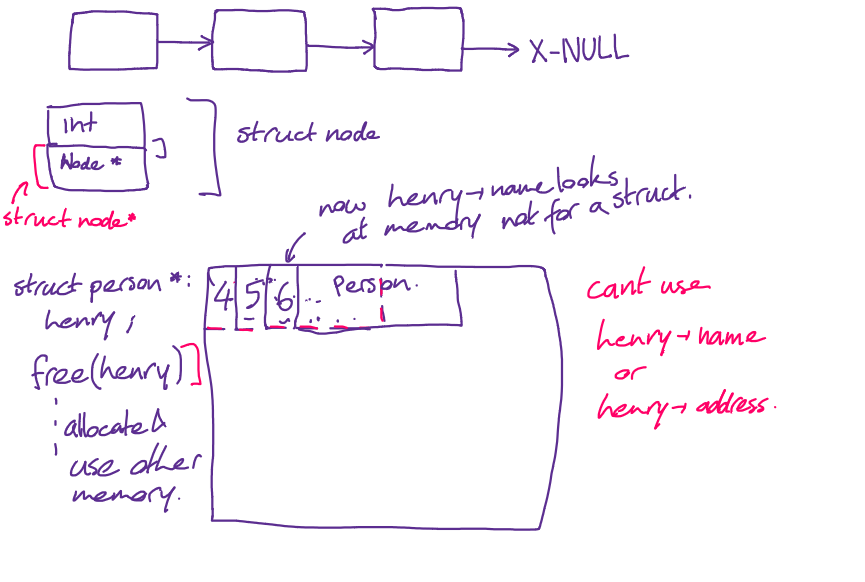 X-NULL
int
Node *
struct node
struct node*
now henry→name looks
at memory not for a struct.
struct person *:
henry ;
4 5 6 ... Person.
free(henry)
allocate &
use other
memory.
cant use
henry→name
or
henry→address.